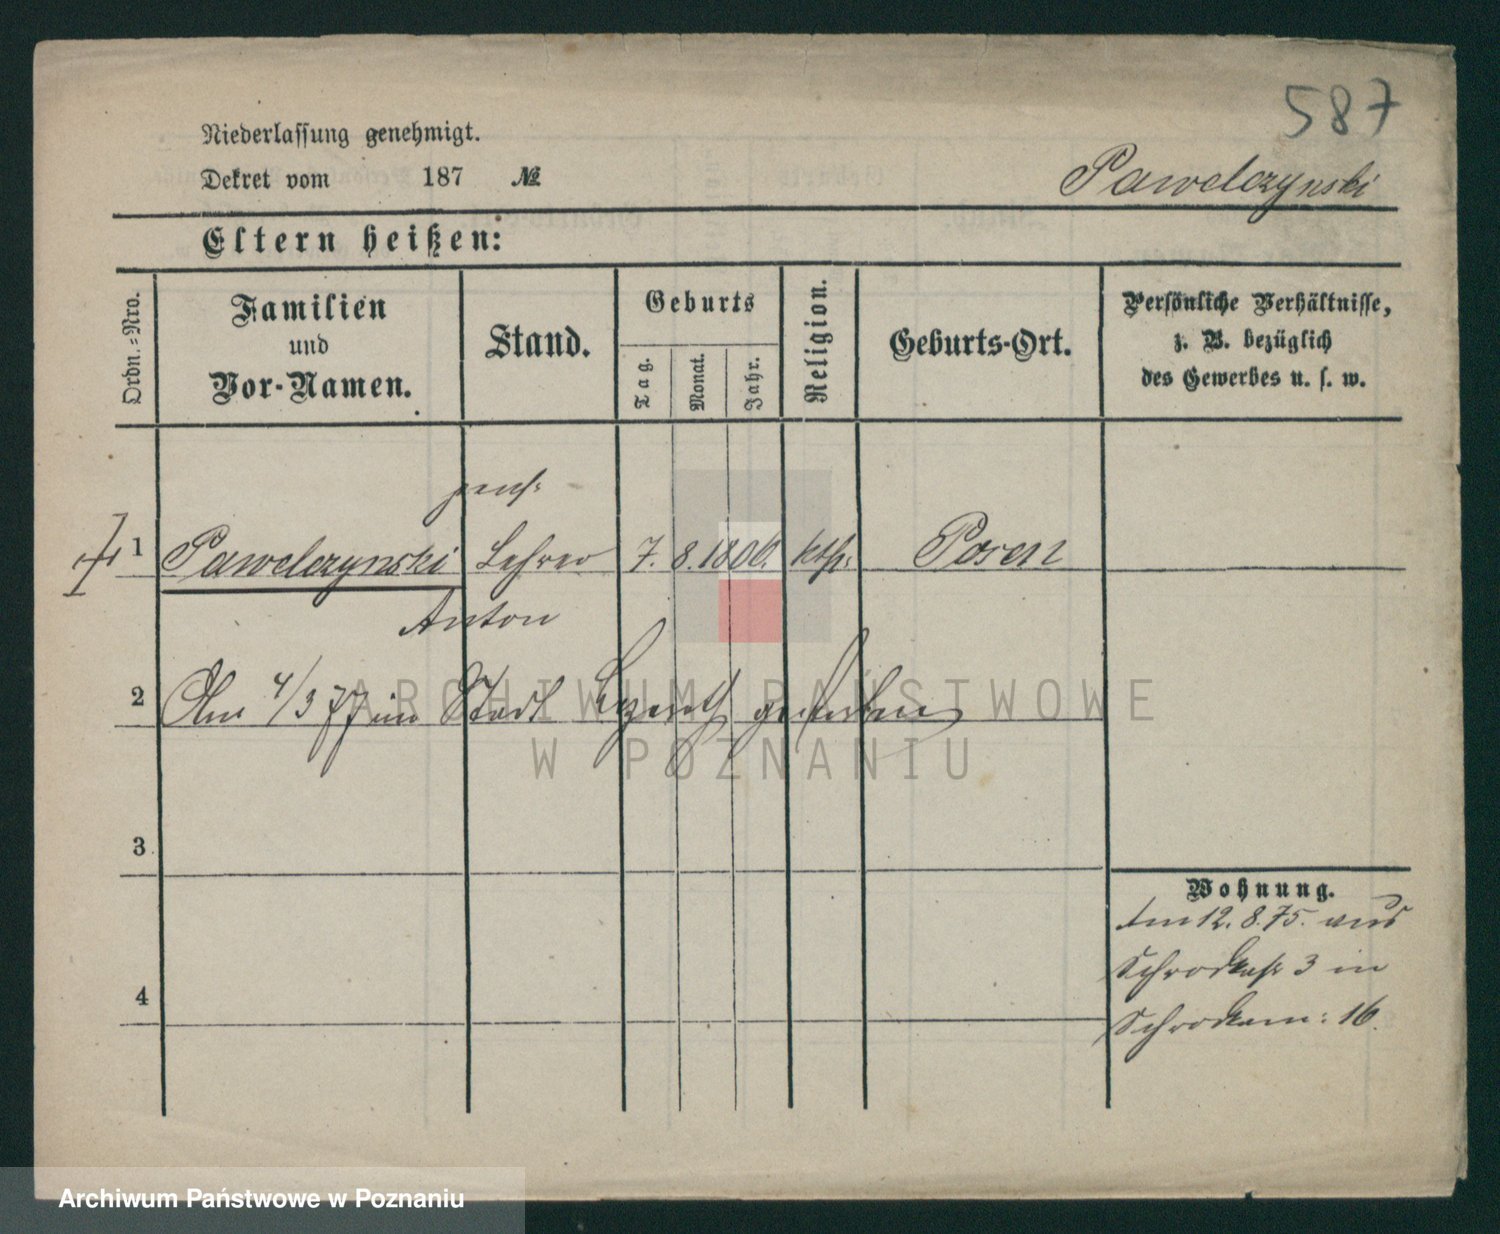 587
Niederlassung genehmigt.
Dekret vom 187 №
Pawelczynski
Eltern heißen:
Ordn.=Nro.
Familien
und
Vor-Namen.
Stand.
Geburts
Tag.
Monat.
Jahr.
Religion.
Geburts-Ort.
Persönliche Verhältnisse,
z. B. bezüglich
des Gewerbes u. s. w.
pens:
1 Pawelczynski Lehrer 7. 8. 1806. kth: Posen
Anton
2 Am 4/3 77 im Stadt Lazareth gestorben
3
4
Wohnung.
Am 12. 8. 75. aus
3 in
16.
ARCHIWUM PAŃSTWOWE
W POZNANIU
Archiwum Państwowe w Poznaniu